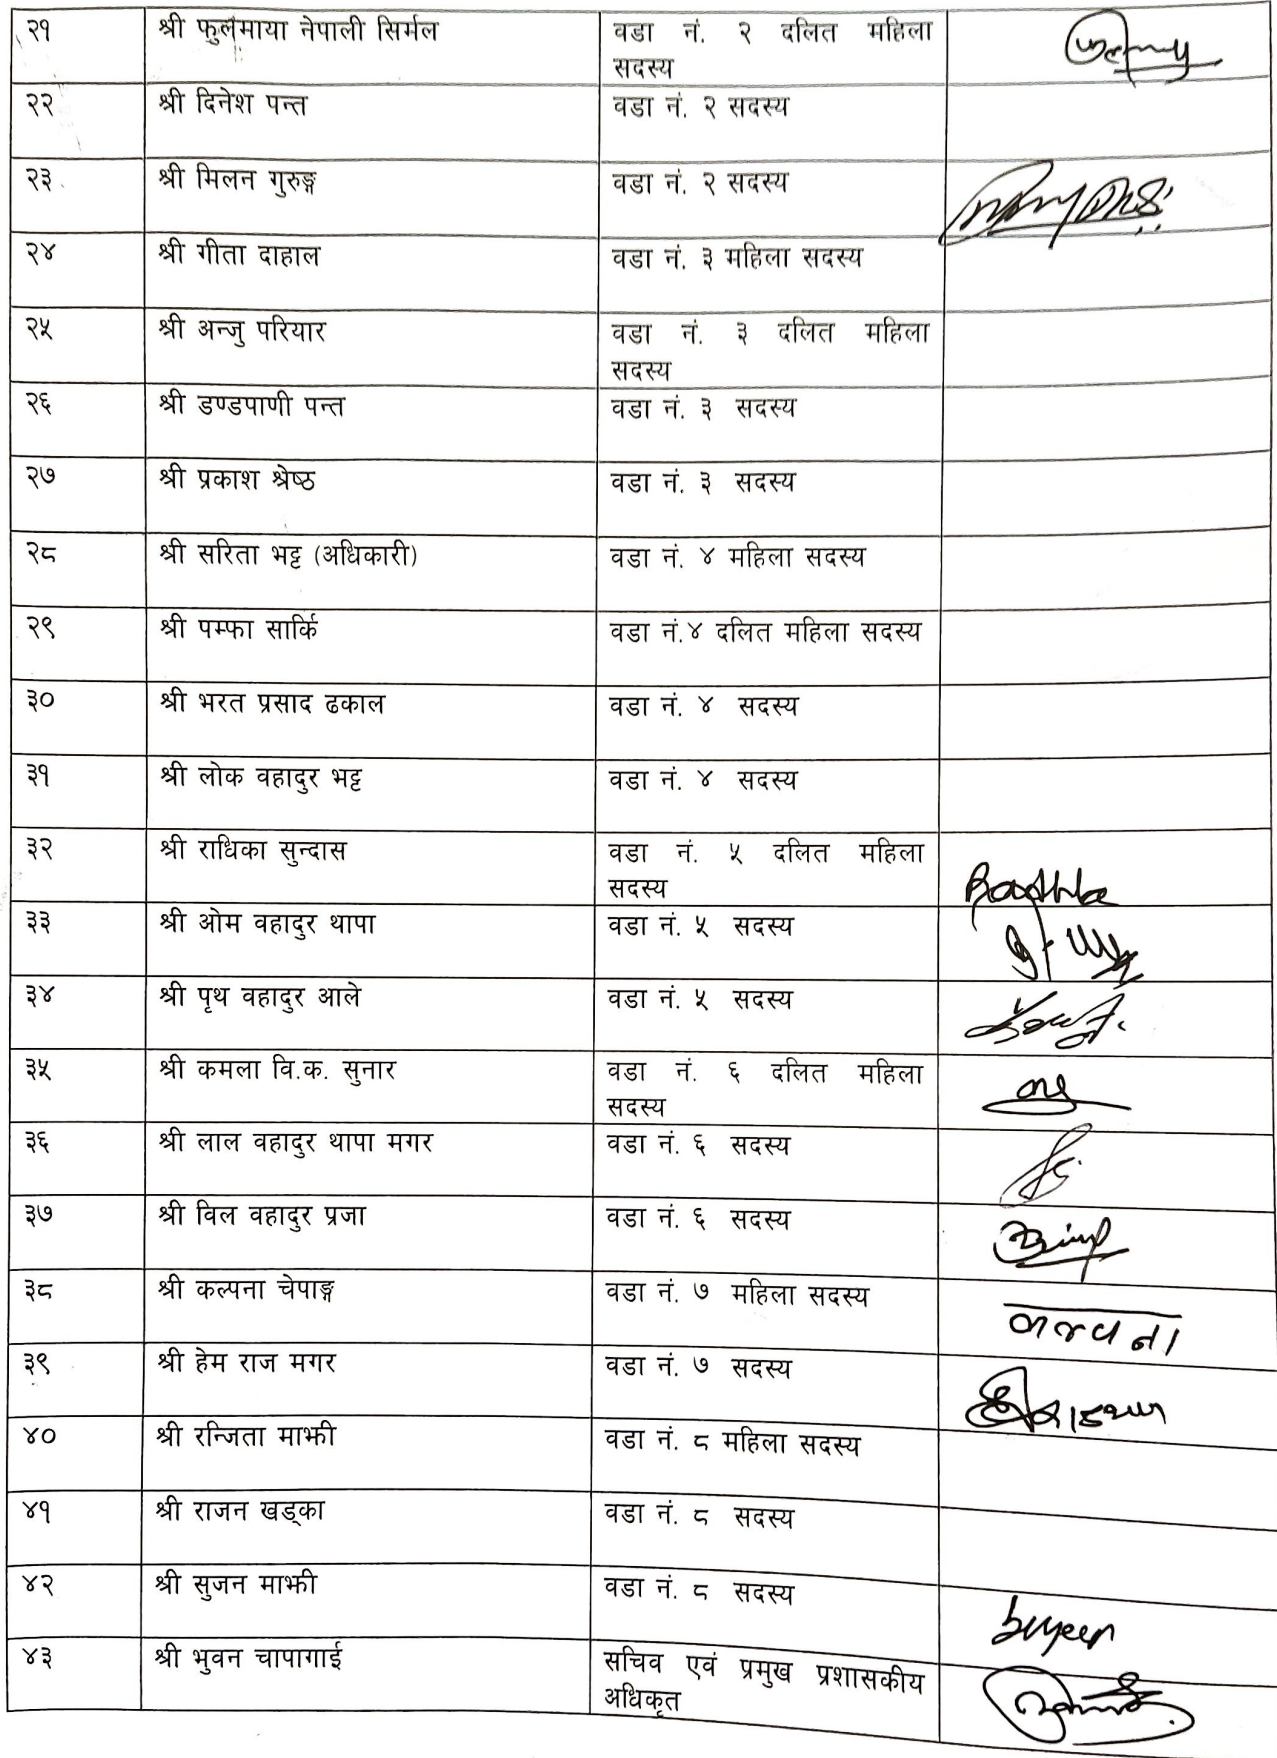 २१ श्री फुलमाया नेपाली सिर्मल वडा नं. २ दलित महिला
सदस्य
२२ श्री दिनेश पन्त वडा नं. २ सदस्य
२३ श्री मिलन गुरुङ्ग वडा नं. २ सदस्य
२४ श्री गीता दाहाल वडा नं. ३ महिला सदस्य
२५ श्री अन्जु परियार वडा नं. ३ दलित महिला
सदस्य
२६ श्री डण्डपाणी पन्त वडा नं. ३ सदस्य
२७ श्री प्रकाश श्रेष्ठ वडा नं. ३ सदस्य
२८ श्री सरिता भट्ट (अधिकारी) वडा नं. ४ महिला सदस्य
२९ श्री पम्फा सार्कि वडा नं.४ दलित महिला सदस्य
३० श्री भरत प्रसाद ढकाल वडा नं. ४ सदस्य
३१ श्री लोक वहादुर भट्ट वडा नं. ४ सदस्य
३२ श्री राधिका सुन्दास वडा नं. ५ दलित महिला
सदस्य
३३ श्री ओम वहादुर थापा वडा नं. ५ सदस्य
३४ श्री पृथ वहादुर आले वडा नं. ५ सदस्य
३५ श्री कमला वि.क. सुनार वडा नं. ६ दलित महिला
सदस्य
३६ श्री लाल वहादुर थापा मगर वडा नं. ६ सदस्य
३७ श्री विल वहादुर प्रजा वडा नं. ६ सदस्य
३८ श्री कल्पना चेपाङ्ग वडा नं. ७ महिला सदस्य कल्पना
३९ श्री हेम राज मगर वडा नं. ७ सदस्य
४० श्री रन्जिता माझी वडा नं. ८ महिला सदस्य
४१ श्री राजन खड्का वडा नं. ८ सदस्य
४२ श्री सुजन माझी वडा नं. ८ सदस्य
४३ श्री भुवन चापागाई सचिव एवं प्रमुख प्रशासकीय
अधिकृत